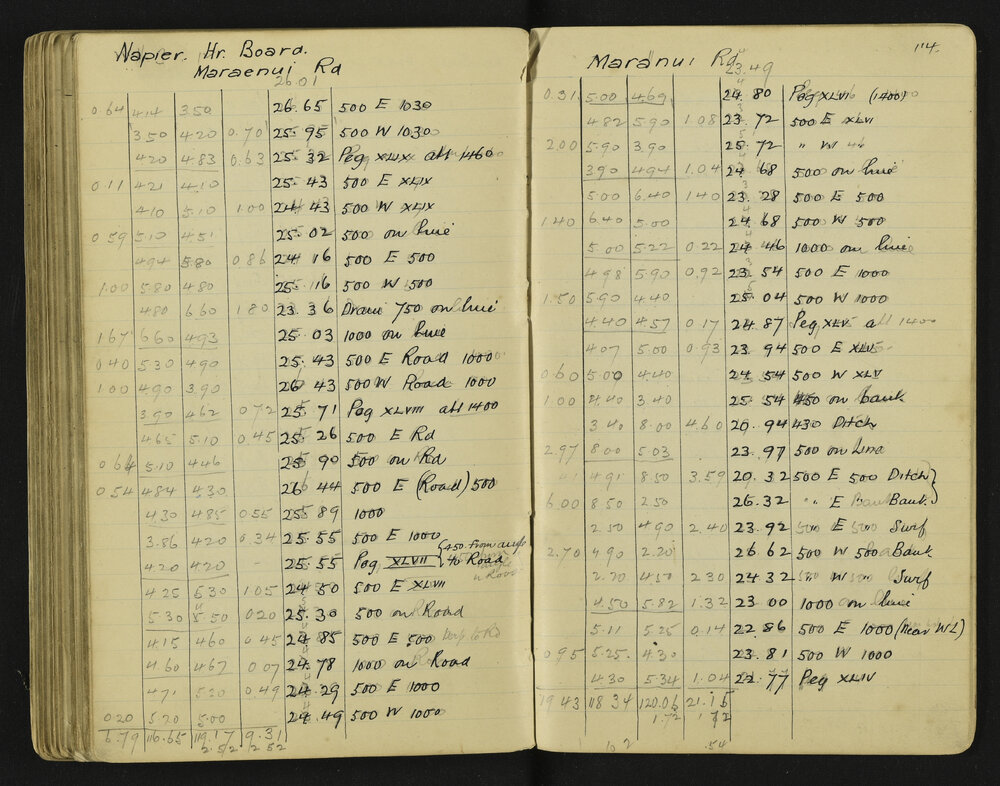 Napier. Hr. Board.
Maraenui Rd
26.01
0.64 4.14 3.50 26.65 500 E 1030
3.50 4.20 0.70 25.95 500 W 1030
4.20 4.83 0.63 25.32 Peg XLIX at 1460
0.11 4.21 4.10 25.43 500 E XLIX
4.10 5.10 1.00 24.43 500 W XLIX
0.59 5.10 4.51 25.02 500 on line
4.94 5.80 0.86 24.16 500 E 500
1.00 5.80 4.80 25.16 500 W 500
4.80 6.60 1.80 23.36 Drain 750 on line
1.67 6.60 4.93 25.03 1000 on line
0.40 5.30 4.90 25.43 500 E Road 1000
1.00 4.90 3.90 26.43 500 W Road 1000
3.90 4.62 0.72 25.71 Peg XLVIII at 1400
4.65 5.10 0.45 25.26 500 E Rd
0.64 5.10 4.46 25.90 500 on Rd
0.54 4.84 4.30 26.44 500 E (Road) 500
4.30 4.85 0.55 25.89 1000
3.86 4.20 0.34 25.55 500 E 1000
4.20 4.20 - 25.55 Peg XLVII {450 from
to Road
4.25 5.30 1.05 24.50 500 E XLVII
5.30 5.50 0.20 25.30 500 on Road
4.15 4.60 0.45 24.85 500 E 500
4.60 4.67 0.07 24.78 1000 on Road
4.71 5.20 0.49 24.29 500 E 1000
0.20 5.20 5.00 24.49 500 W 1000
6.79 116.65 119.17 9.31
2.52 2.52
114.
Maranui Rd
23.49
0.31 5.00 4.69 24.80 Peg XLVI (1400)
4.82 5.90 1.08 23.72 500 E XLVI
2.00 5.90 3.90 25.72 " W 46
3.90 4.94 1.04 24.68 500 on line
5.00 6.40 1.40 23.28 500 E 500
1.40 6.40 5.00 24.68 500 W 500
5.00 5.22 0.22 24.46 1000 on line
4.98 5.90 0.92 23.54 500 E 1000
1.50 5.90 4.40 25.04 500 W 1000
4.40 4.57 0.17 24.87 Peg XLV at 1400
4.07 5.00 0.93 23.94 500 E XLV
0.60 5.00 4.40 24.54 500 W XLV
1.00 4.40 3.40 25.54 450 on bank
3.40 8.00 4.60 20.94 430 Ditch
2.97 8.00 5.03 23.97 500 on Line
4.91 8.50 3.59 20.32 500 E 500 Ditch}
6.00 8.50 2.50 26.32 " " E Bank
2.50 4.90 2.40 23.92 500 E 500 Surf
2.70 4.90 2.20 26.62 500 W 500 Bank
2.20 4.50 2.30 24.32 500 W 500 Surf
4.50 5.82 1.32 23.00 1000 on line
5.11 5.25 0.14 22.86 500 E 1000 (near WL)
0.95 5.25 4.30 23.81 500 W 1000
4.30 5.34 1.04 22.77 Peg XLIV
19.43 118.34 120.06 21.15
1.72 1.72
.54